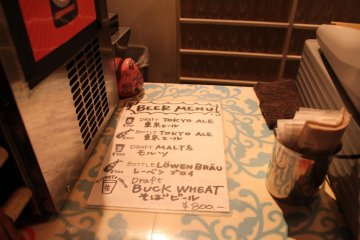 BEER MENU
DRAFT TOKYO ALE
東京エール
BOTTLE TOKYO ALE
東京エール
DRAFT MALT'S
モルツ
BOTTLE LÖWEN BRÄU
レーベンブロイ
Draft
BUCK WHEAT
そばビール
¥800-